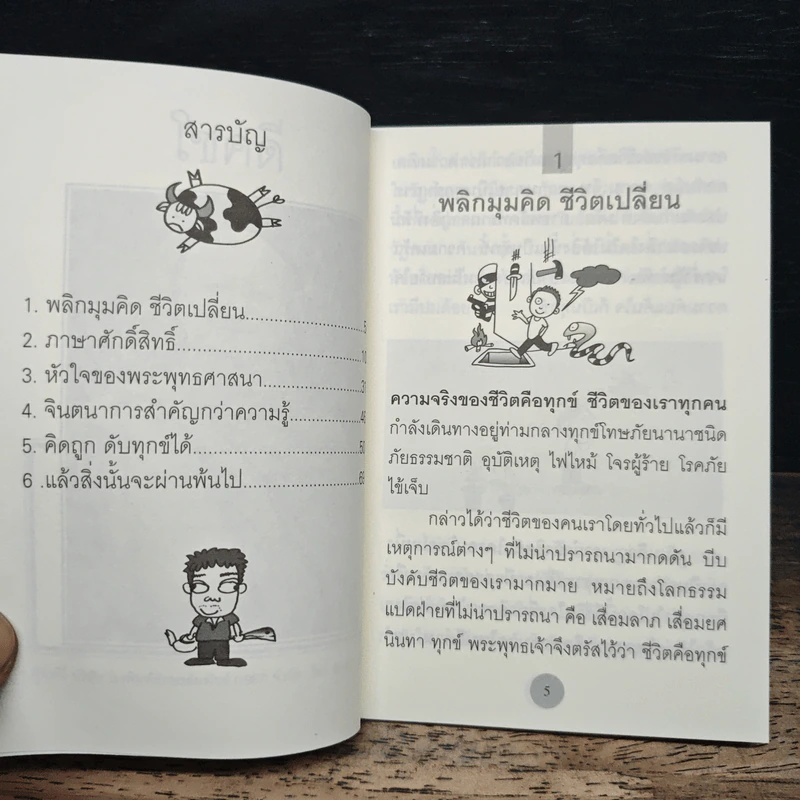 สารบัญ
1. พลิกมุมคิด ชีวิตเปลี่ยน........................5
2. ภาษาศักดิ์สิทธิ์........................10
3. หัวใจของพระพุทธศาสนา........................31
4. จินตนาการสำคัญกว่าความรู้........................46
5. คิดถูก ดับทุกข์ได้........................50
6 .แล้วสิ่งนั้นจะผ่านพ้นไป........................69
1
พลิกมุมคิด ชีวิตเปลี่ยน
ความจริงของชีวิตคือทุกข์ ชีวิตของเราทุกคน
กำลังเดินทางอยู่ท่ามกลางทุกข์โทษภัยนานาชนิด
ภัยธรรมชาติ อุบัติเหตุ ไฟไหม้ โจรผู้ร้าย โรคภัย
ไข้เจ็บ
กล่าวได้ว่าชีวิตของคนเราโดยทั่วไปแล้วก็มี
เหตุการณ์ต่างๆ ที่ไม่น่าปรารถนามากดดัน บีบ
บังคับชีวิตของเรามากมาย หมายถึงโลกธรรม
แปดฝ่ายที่ไม่น่าปรารถนา คือ เสื่อมลาภ เสื่อมยศ
นินทา ทุกข์ พระพุทธเจ้าจึงตรัสไว้ว่า ชีวิตคือทุกข์
5